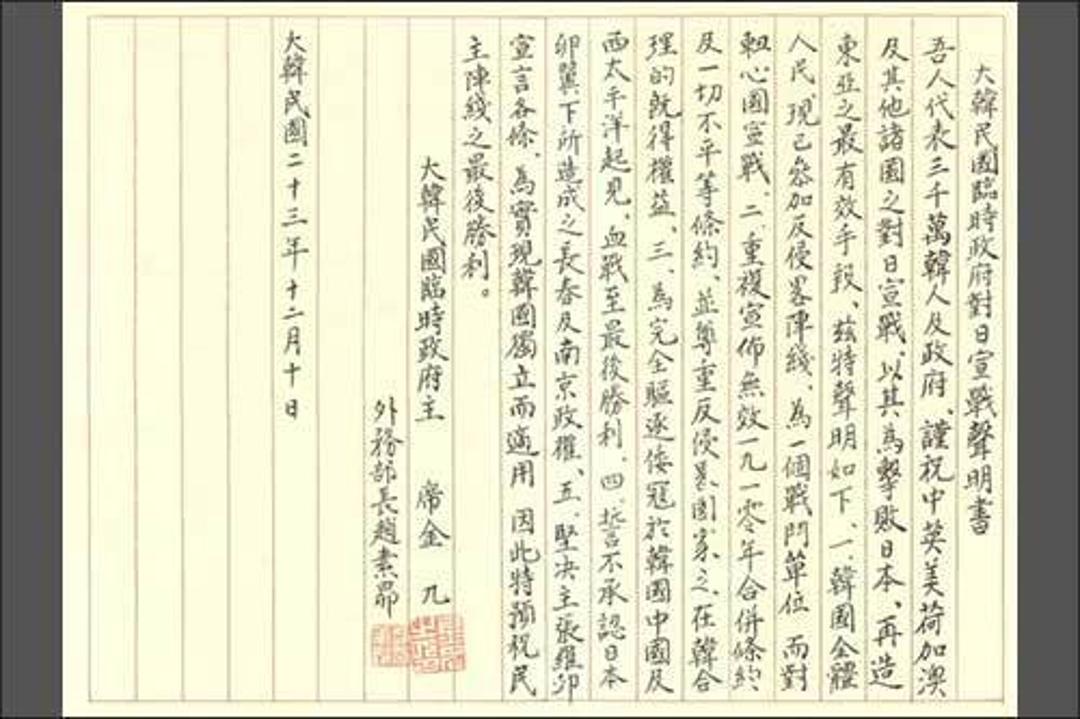 大韓民國臨時政府對日宣戰聲明書
吾人代表三千萬韓人及政府、謹祝中英美荷加澳
及其他諸國之對日宣戰、以其為擊敗日本、再造
東亞之最有效手段、玆特聲明如下、一、韓國全體
人民、現已參加反侵畧陣綫、為一個戰鬥單位 而對
軸心國宣戰、二、重複宣佈無效一九一零年合併條約
及一切不平等條約、並尊重反侵畧國家之、在韓合
理的既得權益、三、為完全驅逐倭寇於韓國中國及
西太平洋起見、血戰至最後勝利、四、誓不承認日本
卵翼下所造成之長春及南京政權、五、堅决主張羅卯
宣言各條、為實現韓國獨立而適用 因此特預祝民
主陣綫之最後勝利。
大韓民國臨時政府主 席金 九
外務部長趙素昂
大韓民國二十三年十二月十日